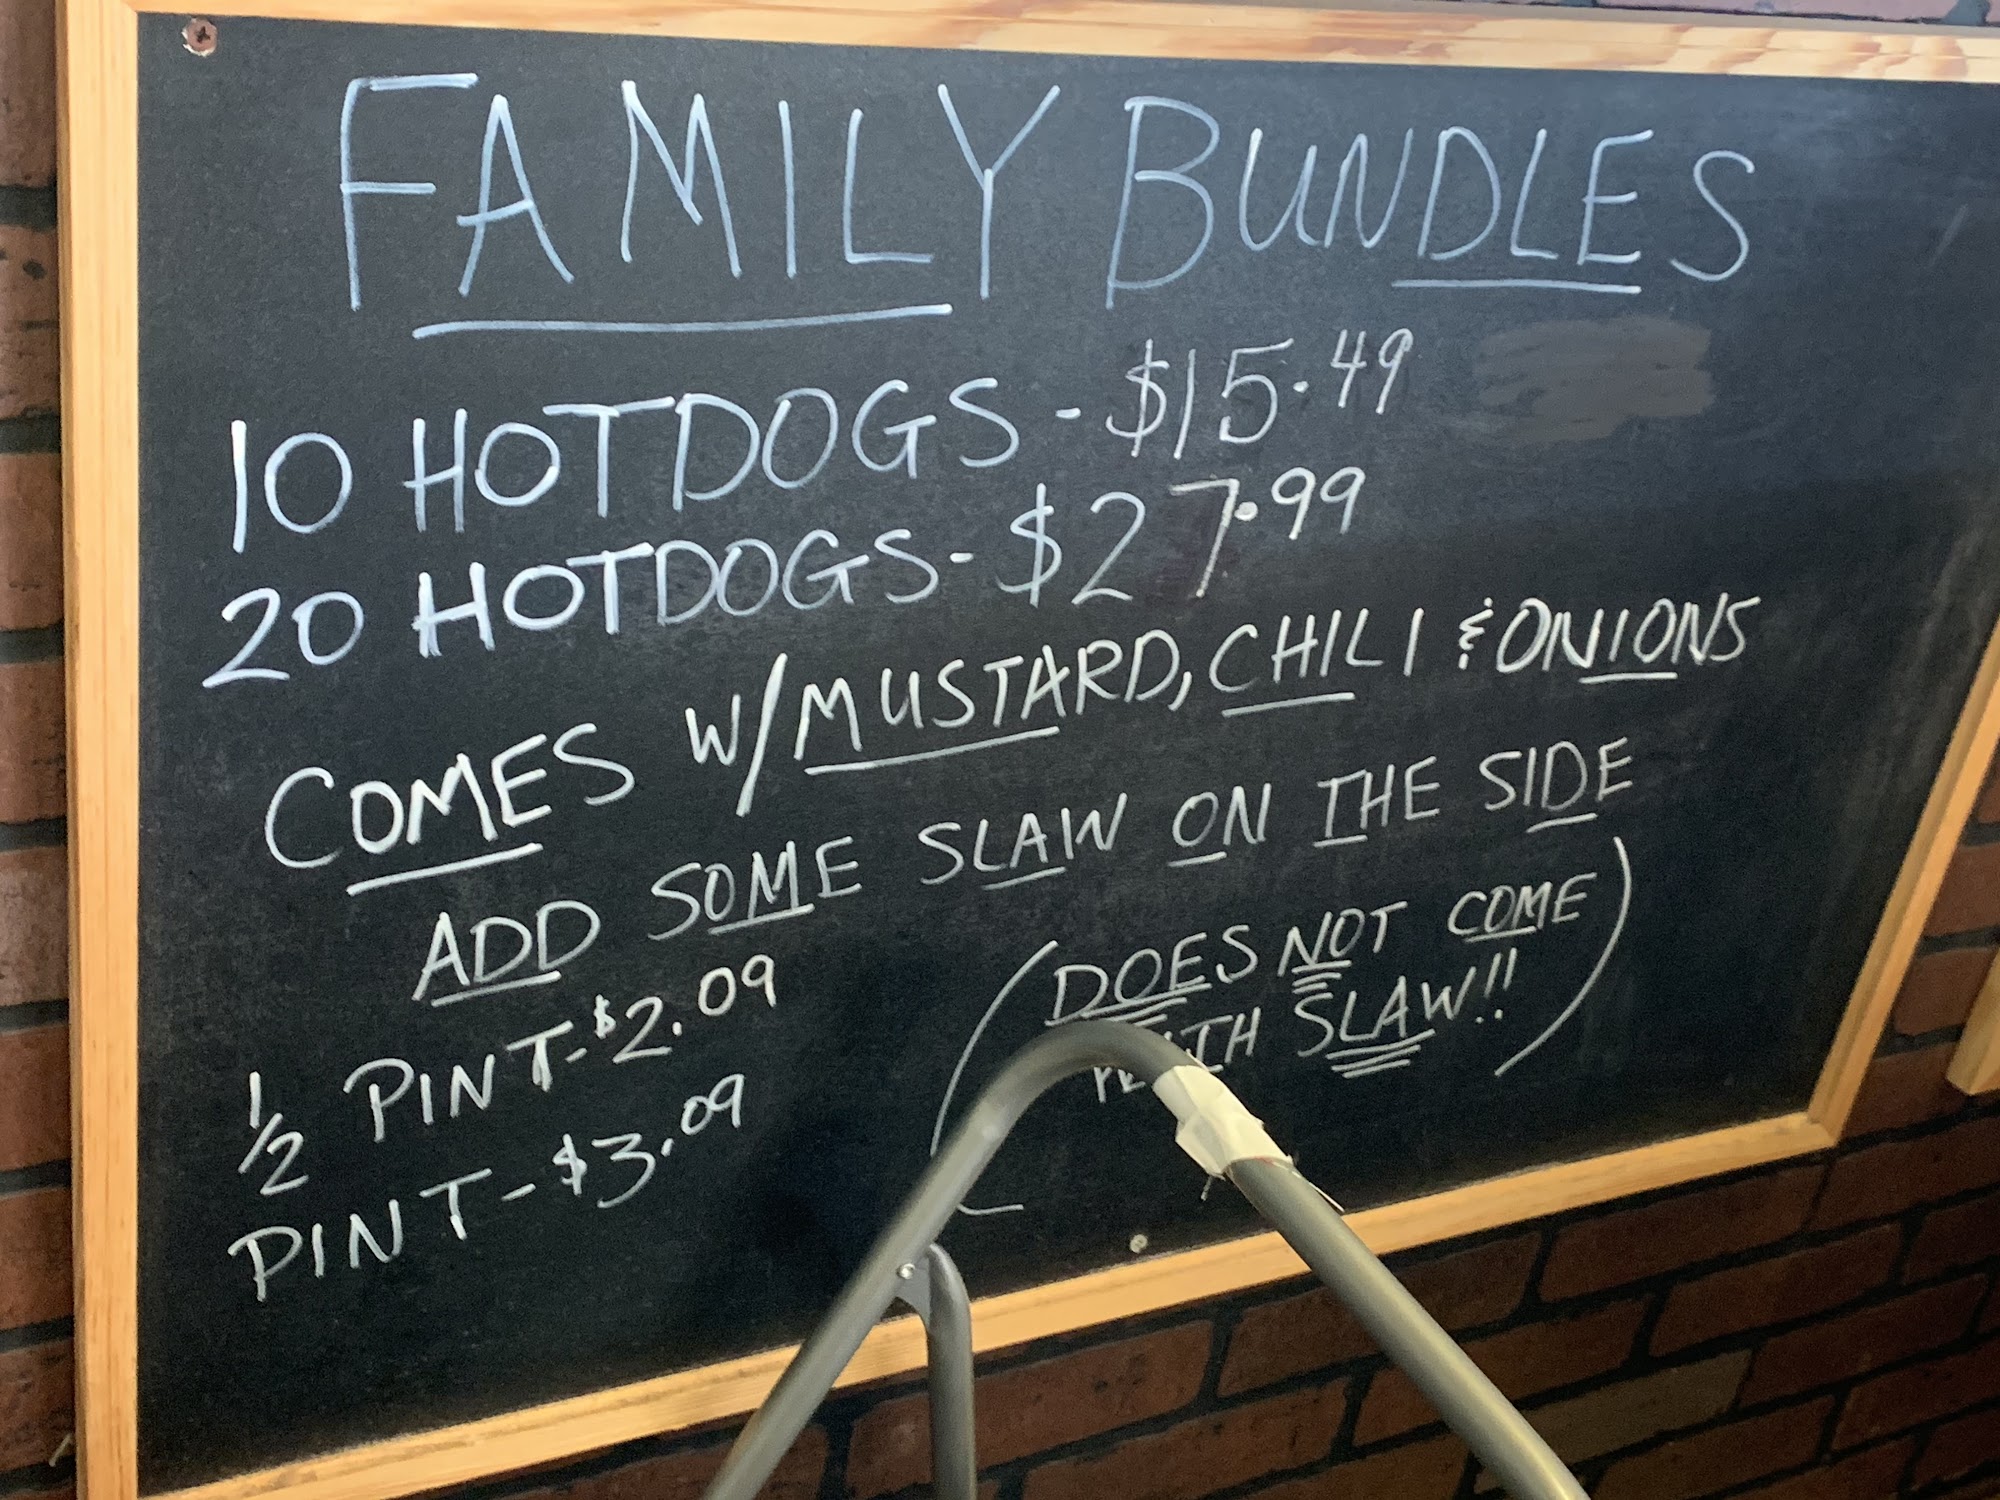 FAMILY BUNDLES
10 HOTDOGS - $15.49
20 HOTDOGS - $27.99
COMES W/ MUSTARD, CHILI & ONIONS
ADD SOME SLAW ON THE SIDE
1/2 PINT - $2.09
PINT - $3.09
(DOES NOT COME
SLAW!!)